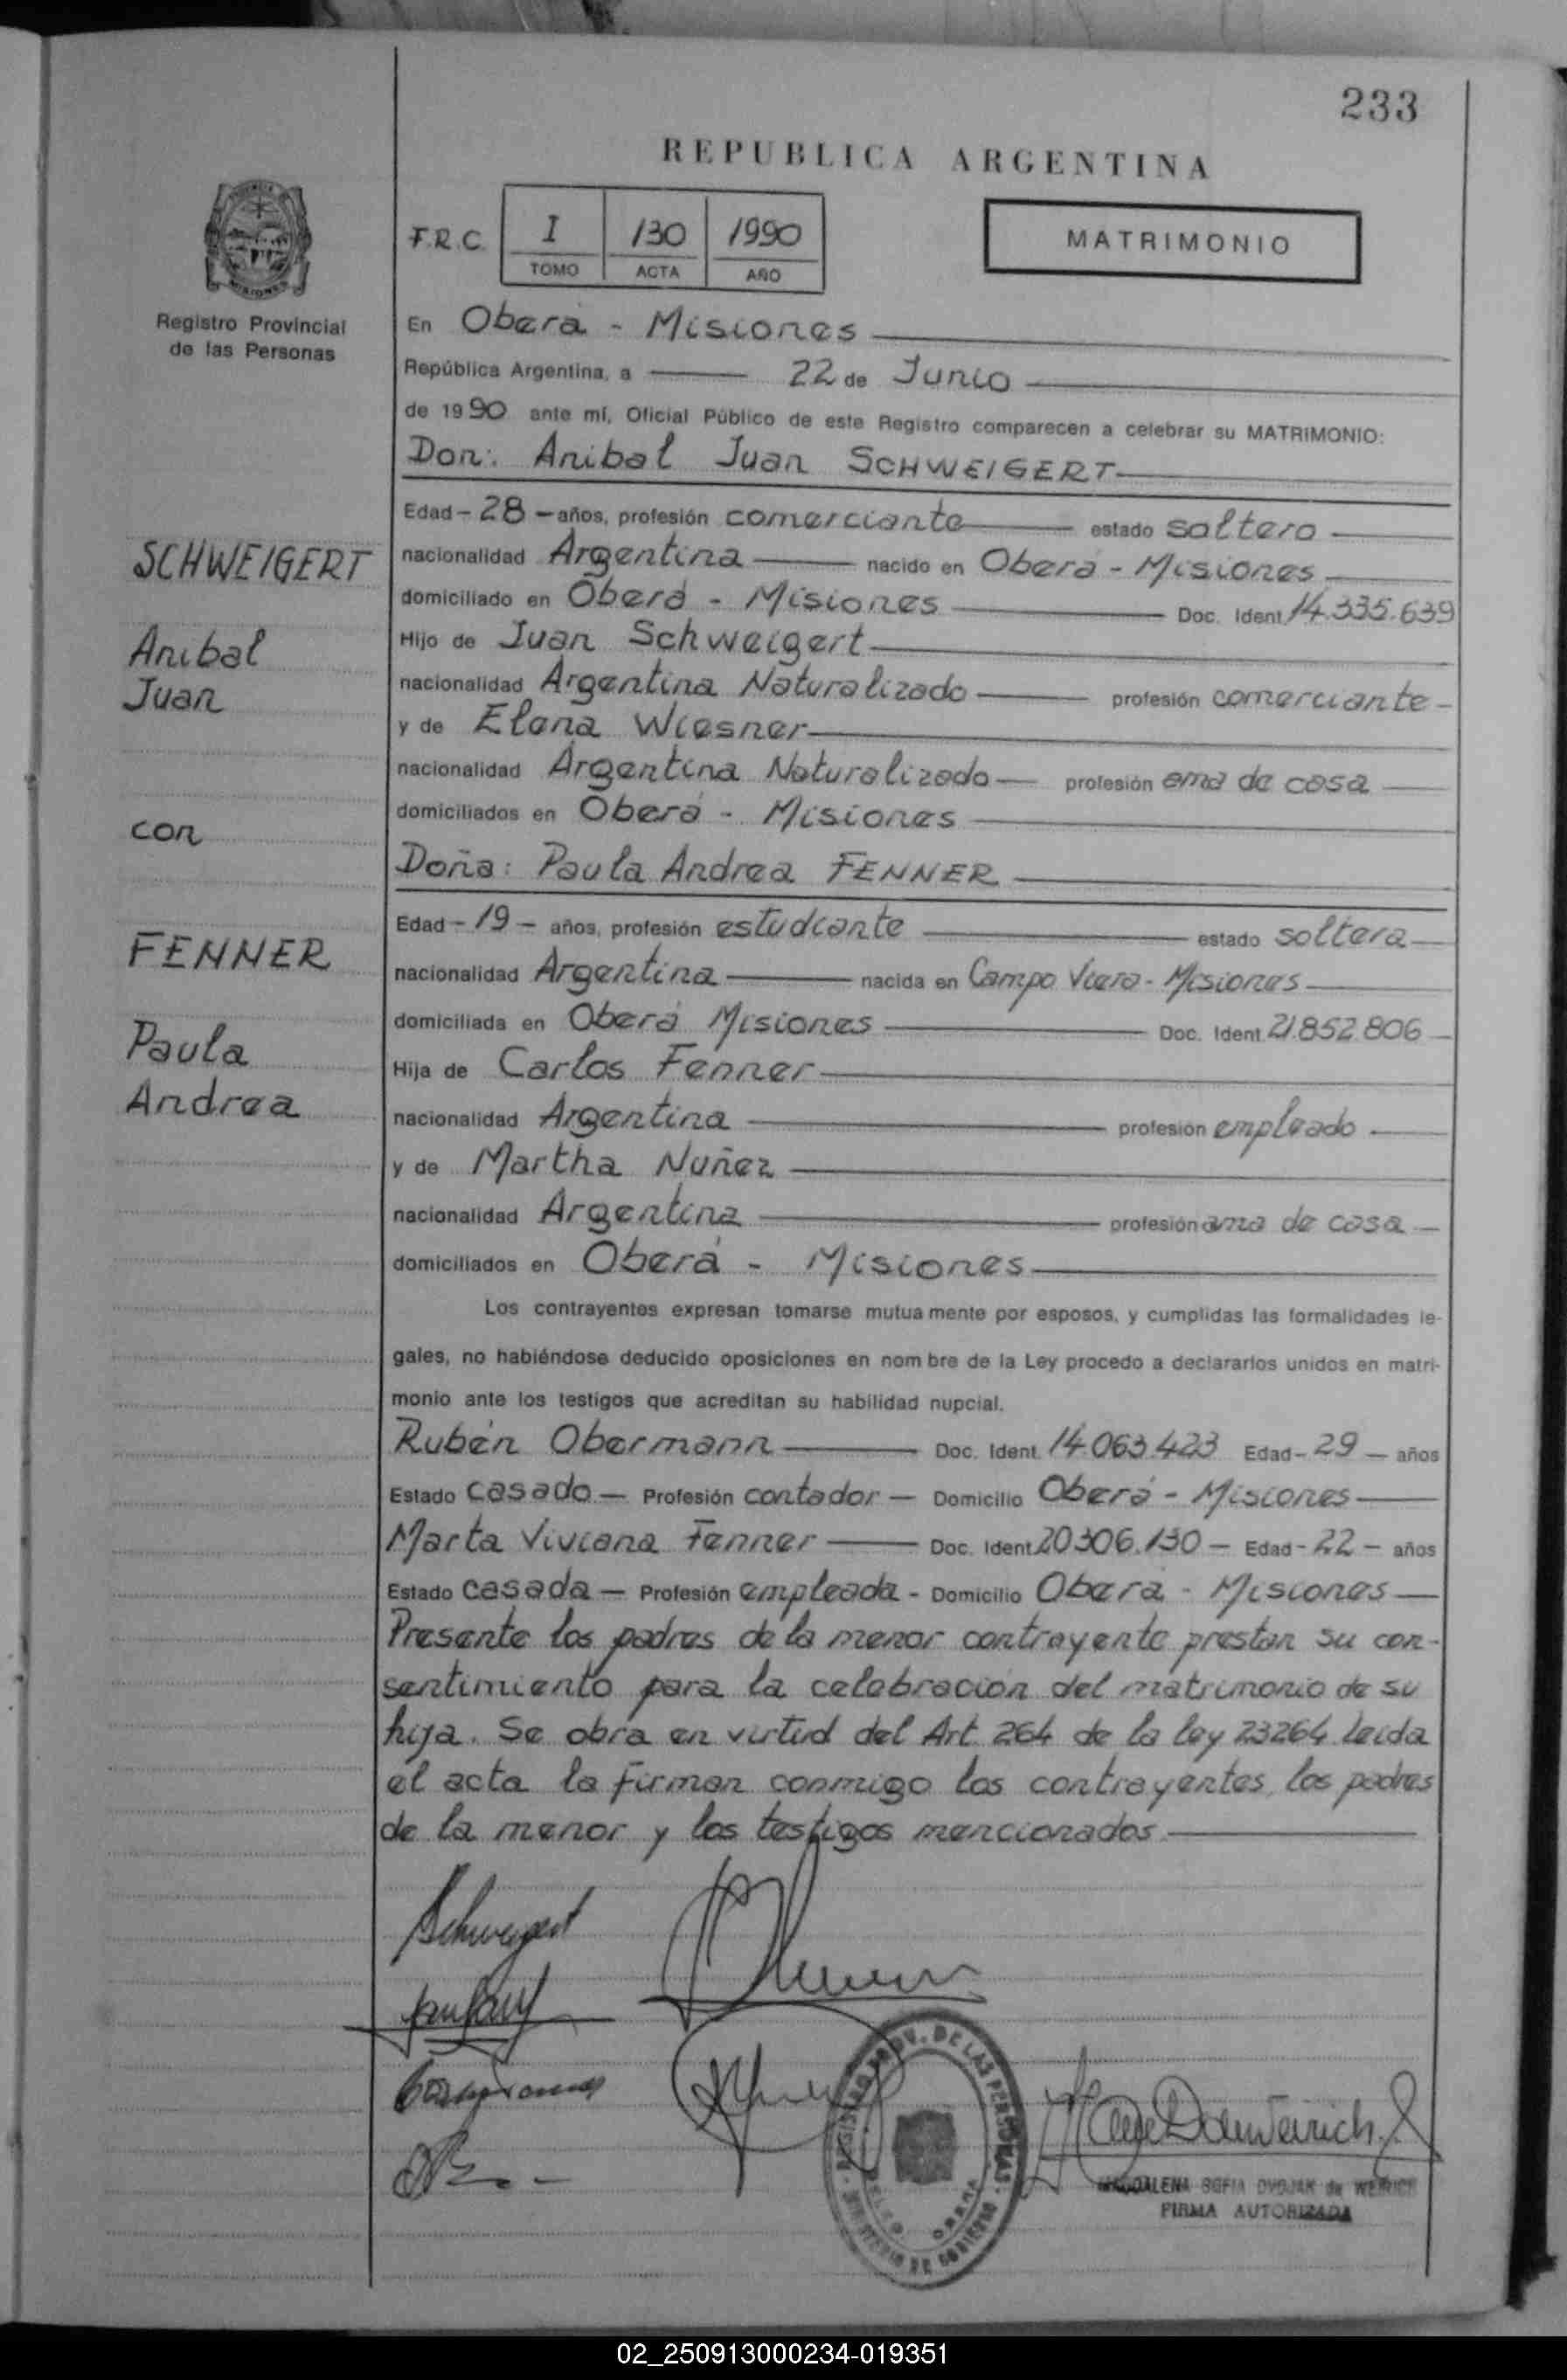 233
REPUBLICA ARGENTINA
F.R.C. I 130 1990
TOMO ACTA AÑO
MATRIMONIO
Registro Provincial
de las Personas
En Oberá - Misiones
República Argentina, a 22 de Junio
de 1990 ante mí, Oficial Público de este Registro comparecen a celebrar su MATRIMONIO:
Don: Anibal Juan SCHWEIGERT
Edad - 28 - años, profesión comerciante estado soltero
SCHWEIGERT
nacionalidad Argentina nacido en Oberá - Misiones
domiciliado en Oberá - Misiones Doc. Ident. 14.335.639
Anibal
Hijo de Juan Schweigert
Juan
nacionalidad Argentina Naturalizado profesión comerciante -
y de Elena Wiesner
nacionalidad Argentina Naturalizado profesión ama de casa
domiciliados en Oberá - Misiones
con
Doña: Paula Andrea FENNER
Edad - 19 - años, profesión estudiante estado soltera
FENNER
nacionalidad Argentina nacida en Campo Viera - Misiones
domiciliada en Oberá Misiones Doc. Ident. 21.852.806
Paula
Hija de Carlos Fenner
Andrea
nacionalidad Argentina profesión empleado
y de Martha Nuñez
nacionalidad Argentina profesión ama de casa
domiciliados en Oberá - Misiones
Los contrayentes expresan tomarse mutua mente por esposos, y cumplidas las formalidades le-
gales, no habiéndose deducido oposiciones en nom bre de la Ley procedo a declararlos unidos en matri-
monio ante los testigos que acreditan su habilidad nupcial.
Rubén Obermann Doc. Ident. 14.063.423 Edad - 29 - años
Estado casado - Profesión contador - Domicilio Oberá - Misiones
Marta Viviana Fenner Doc. Ident. 20306.130 - Edad - 22 - años
Estado casada - Profesión empleada - Domicilio Oberá - Misiones
Presente los padres de la menor contrayente prestan su con-
sentimiento para la celebración del matrimonio de su
hija. Se obra en virtud del Art. 264 de la ley 23264. Leida
el acta la firman conmigo los contrayentes, los padres
de la menor y los testigos mencionados.
Schweigert
REGISTRO PROV. DE LAS PERSONAS
MINISTERIO DE GOBIERNO
OBERA
MAGDALENA SOFIA DVOJAK de WEIRICH
FIRMA AUTORIZADA
02_250913000234-019351